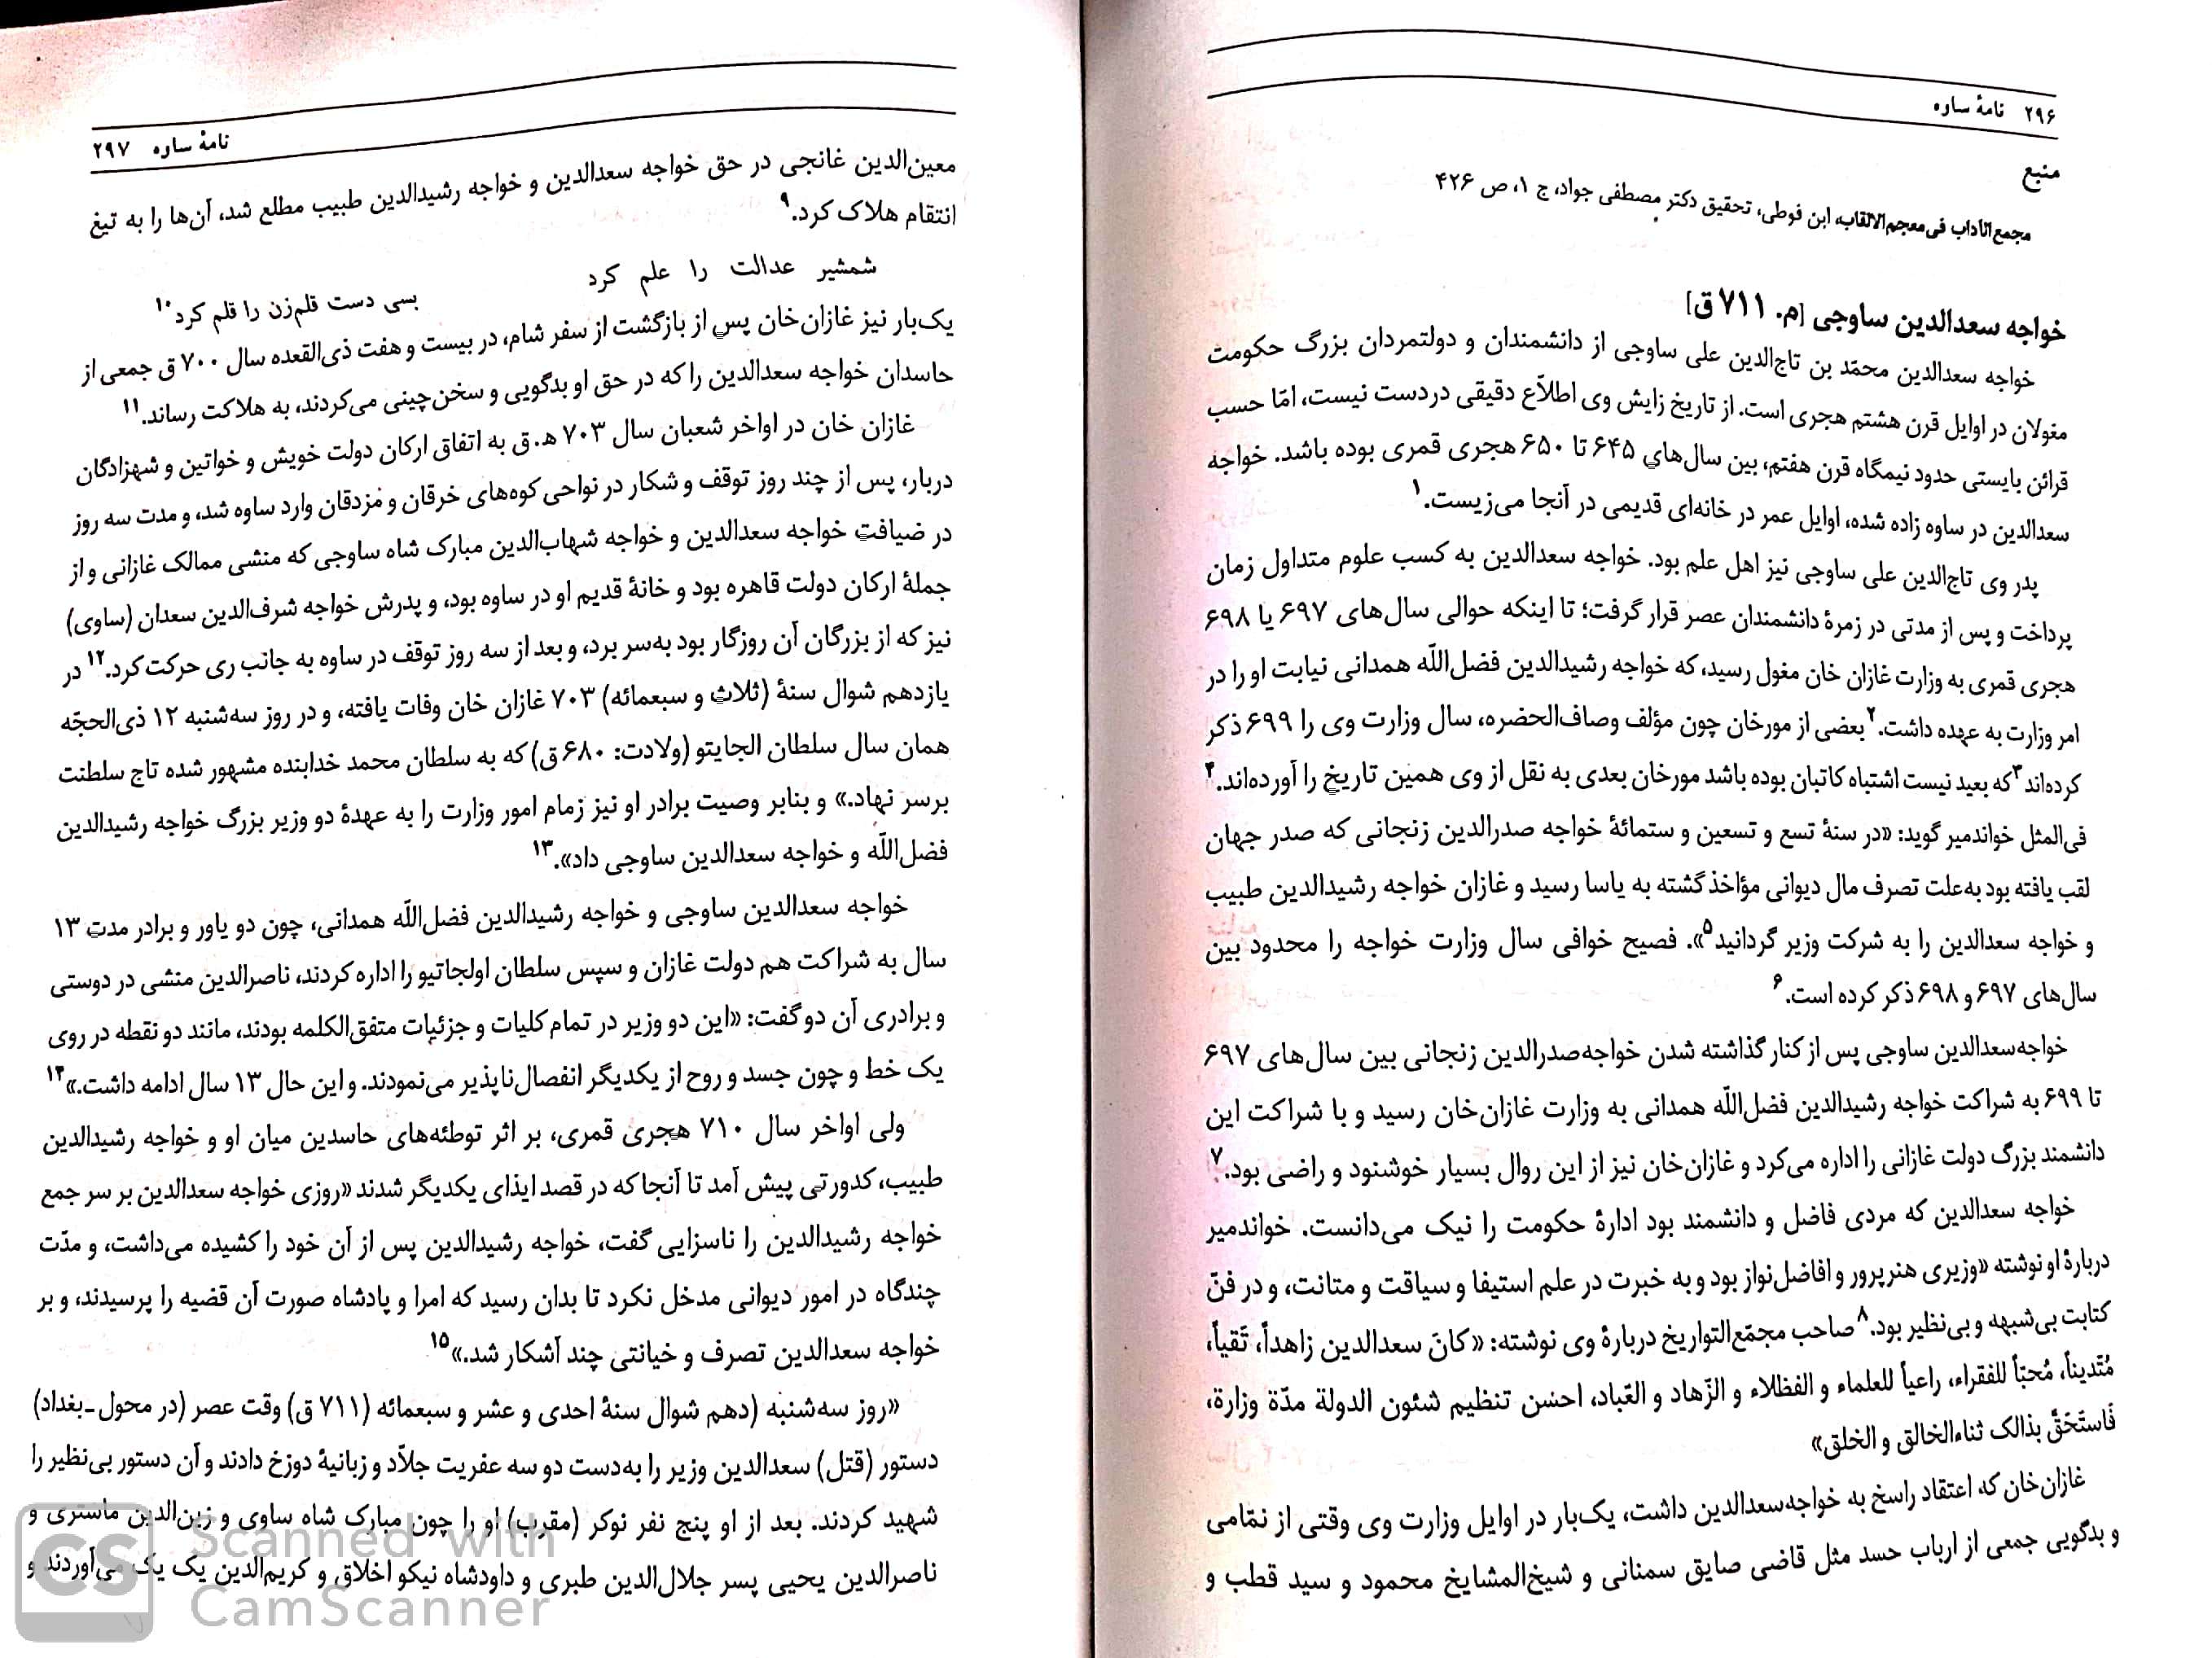 ۲۹۶ نامهٔ ساوه
منبع
مجمع‌الآداب فی‌معجم‌الالقاب، ابن فوطی، تحقیق دکتر مصطفی جواد، ج ۱، ص ۴۲۶
خواجه سعدالدین ساوجی [م. ۷۱۱ ق]
خواجه سعدالدین محمّد بن تاج‌الدین علی ساوجی از دانشمندان و دولتمردان بزرگ حکومت
مغولان در اوایل قرن هشتم هجری است. از تاریخ زایش وی اطلاّع دقیقی دردست نیست، امّا حسب
قرائن بایستی حدود نیمگاه قرن هفتم، بین سال‌های ۶۴۵ تا ۶۵۰ هجری قمری بوده باشد. خواجه
سعدالدین در ساوه زاده شده، اوایل عمر در خانه‌ای قدیمی در آنجا می‌زیست.۱
پدر وی تاج‌الدین علی ساوجی نیز اهل علم بود. خواجه سعدالدین به کسب علوم متداول زمان
پرداخت و پس از مدتی در زمرهٔ دانشمندان عصر قرار گرفت؛ تا اینکه حوالی سال‌های ۶۹۷ یا ۶۹۸
هجری قمری به وزارت غازان خان مغول رسید، که خواجه رشیدالدین فضل‌اللّه همدانی نیابت او را در
امر وزارت به عهده داشت.۲ بعضی از مورخان چون مؤلف وصاف‌الحضره، سال وزارت وی را ۶۹۹ ذکر
کرده‌اند۳ که بعید نیست اشتباه کاتبان بوده باشد مورخان بعدی به نقل از وی همین تاریخ را آورده‌اند.۴
فی‌المثل خواندمیر گوید: «در سنهٔ تسع و تسعین و ستمائهٔ خواجه صدرالدین زنجانی که صدر جهان
لقب یافته بود به‌علت تصرف مال دیوانی مؤاخذ گشته به یاسا رسید و غازان خواجه رشیدالدین طبیب
و خواجه سعدالدین را به شرکت وزیر گردانید۵». فصیح خوافی سال وزارت خواجه را محدود بین
سال‌های ۶۹۷ و ۶۹۸ ذکر کرده است.۶
خواجه‌سعدالدین ساوجی پس از کنار گذاشته شدن خواجه‌صدرالدین زنجانی بین سال‌های ۶۹۷
تا ۶۹۹ به شراکت خواجه رشیدالدین فضل‌اللّه همدانی به وزارت غازان‌خان رسید و با شراکت این
دانشمند بزرگ دولت غازانی را اداره می‌کرد و غازان‌خان نیز از این روال بسیار خوشنود و راضی بود.۷
خواجه سعدالدین که مردی فاضل و دانشمند بود ادارهٔ حکومت را نیک می‌دانست. خواندمیر
دربارهٔ او نوشته «وزیری هنرپرور و افاضل‌نواز بود و به خبرت در علم استیفا و سیاقت و متانت، و در فنّ
کتابت بی‌شبهه و بی‌نظیر بود.۸ صاحب مجمّع‌التواریخ دربارهٔ وی نوشته: «کانَ سعدالدین زاهداً، تَقیاً،
مُتَدیناً، مُحبّاً للفقراء، راعیاً للعلماء و الفظلاء و الزّهاد و العّباد، احسَن تنظیم شئون الدولة مدّة وزارة،
فَاستَحَقَّ بذالک ثناءالخالق و الخلق»
غازان‌خان که اعتقاد راسخ به خواجه‌سعدالدین داشت، یک‌بار در اوایل وزارت وی وقتی از نمّامی
و بدگویی جمعی از ارباب حسد مثل قاضی صایق سمنانی و شیخ‌المشایخ محمود و سید قطب و
نامهٔ ساوه ۲۹۷
معین‌الدین غانجی در حق خواجه سعدالدین و خواجه رشیدالدین طبیب مطلع شد، آن‌ها را به تیغ
انتقام هلاک کرد.۹
شمشیر عدالت را علم کرد
بسی دست قلم‌زن را قلم کرد۱۰
یک‌بار نیز غازان‌خان پس از بازگشت از سفر شام، در بیست و هفت ذی‌القعده سال ۷۰۰ ق جمعی از
حاسدان خواجه سعدالدین را که در حق او بدگویی و سخن‌چینی می‌کردند، به هلاکت رساند.۱۱
غازان خان در اواخر شعبان سال ۷۰۳ ه‍. ق به اتفاق ارکان دولت خویش و خواتین و شهزادگان
دربار، پس از چند روز توقف و شکار در نواحی کوه‌های خرقان و مزدقان وارد ساوه شد، و مدت سه روز
در ضیافت خواجه سعدالدین و خواجه شهاب‌الدین مبارک شاه ساوجی که منشی ممالک غازانی و از
جملهٔ ارکان دولت قاهره بود و خانهٔ قدیم او در ساوه بود، و پدرش خواجه شرف‌الدین سعدان (ساوی)
نیز که از بزرگان آن روزگار بود به‌سر برد، و بعد از سه روز توقف در ساوه به جانب ری حرکت کرد.۱۲ در
یازدهم شوال سنهٔ (ثلاث و سبعمائه) ۷۰۳ غازان خان وفات یافته، و در روز سه‌شنبه ۱۲ ذی‌الحجّه
همان سال سلطان الجایتو (ولادت: ۶۸۰ ق) که به سلطان محمد خدابنده مشهور شده تاج سلطنت
برسر نهاد.» و بنابر وصیت برادر او نیز زمام امور وزارت را به عهدهٔ دو وزیر بزرگ خواجه رشیدالدین
فضل‌اللّه و خواجه سعدالدین ساوجی داد».۱۳
خواجه سعدالدین ساوجی و خواجه رشیدالدین فضل‌اللّه همدانی، چون دو یاور و برادر مدت ۱۳
سال به شراکت هم دولت غازان و سپس سلطان اولجاتیو را اداره کردند، ناصرالدین منشی در دوستی
و برادری آن دو گفت: «این دو وزیر در تمام کلیات و جزئیات متفق‌الکلمه بودند، مانند دو نقطه در روی
یک خط و چون جسد و روح از یکدیگر انفصال‌ناپذیر می‌نمودند. و این حال ۱۳ سال ادامه داشت.»۱۴
ولی اواخر سال ۷۱۰ هجری قمری، بر اثر توطئه‌های حاسدین میان او و خواجه رشیدالدین
طبیب، کدورتی پیش آمد تا آنجا که در قصد ایذای یکدیگر شدند «روزی خواجه سعدالدین بر سر جمع
خواجه رشیدالدین را ناسزایی گفت، خواجه رشیدالدین پس از آن خود را کشیده می‌داشت، و مدّت
چندگاه در امور دیوانی مدخل نکرد تا بدان رسید که امرا و پادشاه صورت آن قضیه را پرسیدند، و بر
خواجه سعدالدین تصرف و خیانتی چند آشکار شد.»۱۵
«روز سه‌شنبه (دهم شوال سنهٔ احدی و عشر و سبعمائه (۷۱۱ ق) وقت عصر (در محول ـ بغداد)
دستور (قتل) سعدالدین وزیر را به‌دست دو سه عفریت جلاّد و زبانیهٔ دوزخ دادند و آن دستور بی‌نظیر را
شهید کردند. بعد از او پنج نفر نوکر (مقرب) او را چون مبارک شاه ساوی و زین‌الدین ماستری و
ناصرالدین یحیی پسر جلال‌الدین طبری و داودشاه نیکو اخلاق و کریم‌الدین یک یک می‌آوردند و
CS Scanned with
CamScanner